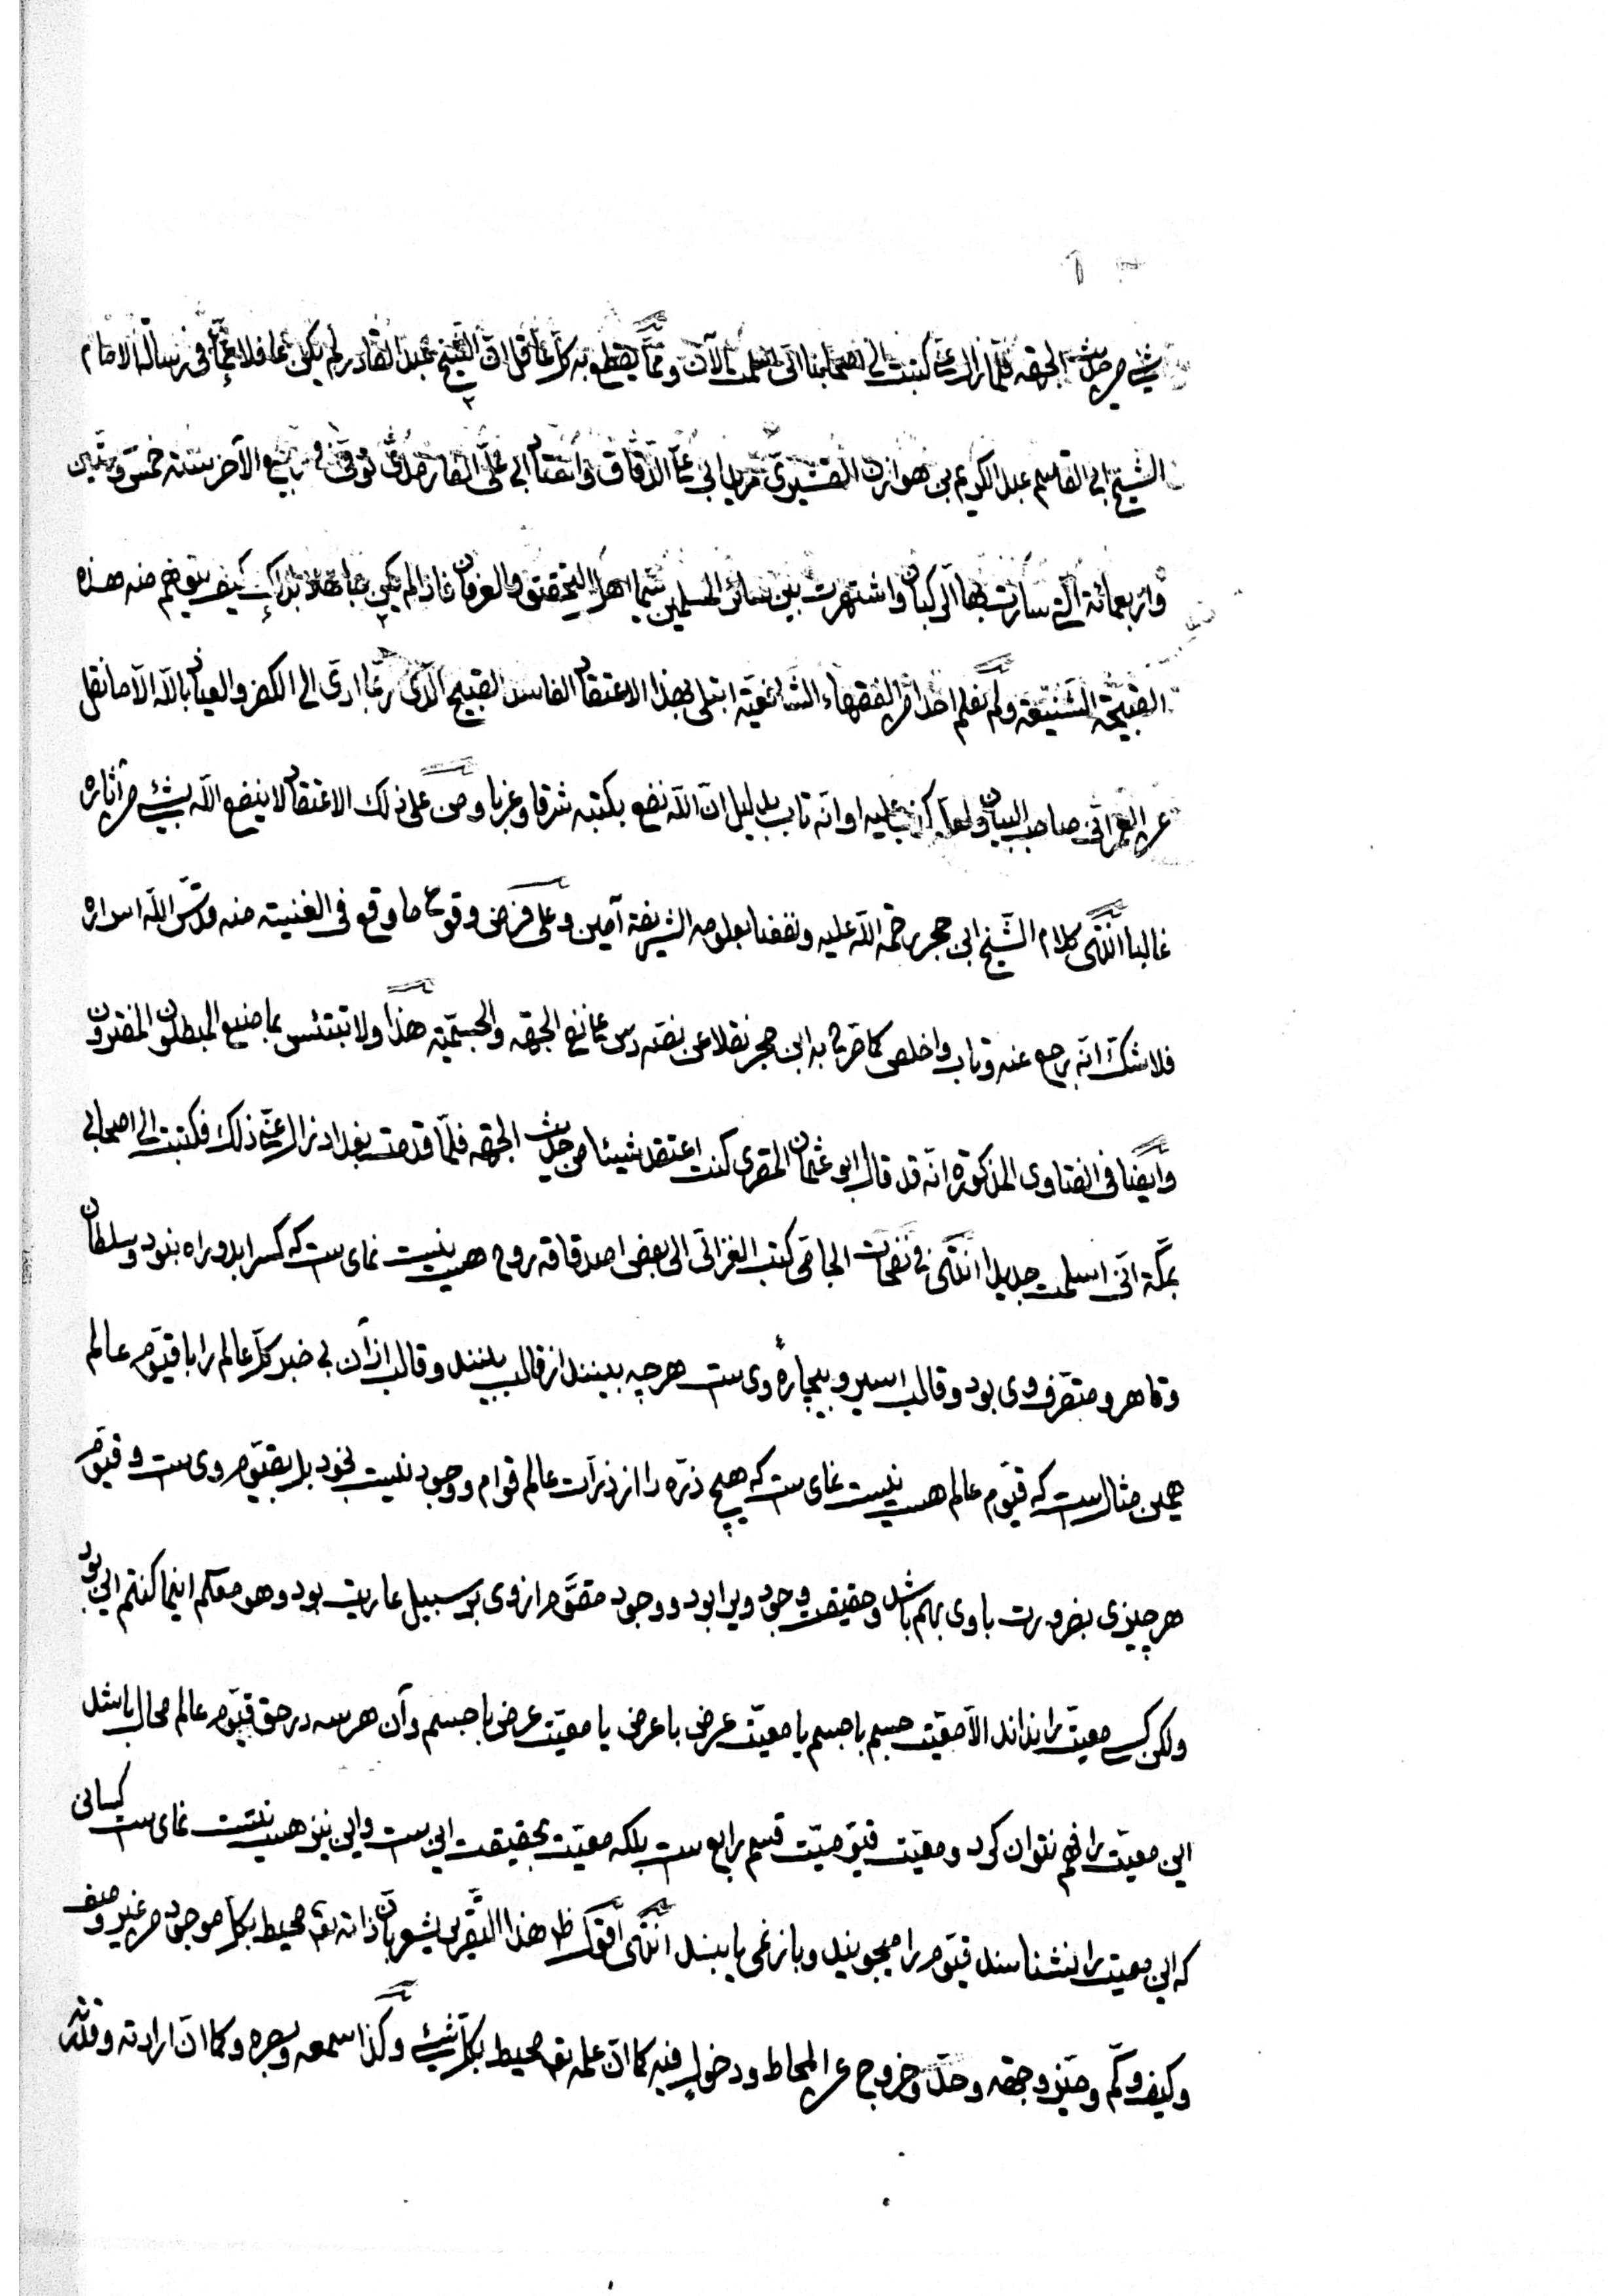 شيء من حديث الجهة فلما زال عنّي كتبت إلى أصحابنا انّى اسلمت الآن وممّا يقطع به كلّ عاقل انّ الشّيخ عبد القادر لم يكن غافلا عمّا فى رسالة الامام
الشّيخ ابى القاسم عبد الكريم بن هوازن القشيرىّ مريد ابى علىّ الدّقّاق توفّى فى ربيع الآخر سنة خمس وستّين
واربعمائة الّتى سارت بها الركبان واشتهرت بين سائر المسلمين سيّما اهل التّحقيق والعرفان فاذا لم يكن جاهلا بذلك كيف يتوهّم منه هذه
القبيحة الشّنيعة ولم نعلم احدا من الفقهاء الشّافعيّة ابتلى بهذا الاعتقاد الفاسد القبيح الّذى ربّما ادّى الى الكفر والعياذ باللّه الّا ما نقل
عن العمرانىّ صاحب البيان ولعلّه كذب عليه او انّه تاب بدليل انّ اللّه نفع بكتبه شرقا وغربا ومن على ذلك الاعتقاد لا ينفع اللّه بشيء من آثاره
غالبا انتهى كلام الشّيخ ابن حجر رحمة اللّه عليه ونفعنا بعلومه الشريفة آمين وعلى فرض وقوع ما وقع فى الغنية منه قدّس اللّه اسراره
فلا شكّ انّه رجع عنه وتاب واخلص كما صرّح به ابن حجر نقلا عن نصّه على نفى الجهة والجسميّة هذا ولا تبتئس بما صنيع المبطلون المفترون
وايضا فى الفتاوى المذكورة انّه قد قال ابو عثمان المغربى كنت اعتقد شيئا من حديث الجهة فلمّا قدمت بغداد زال عنّى ذلك فكتبت الى اصحابى
بمكّة انّى اسلمت جديدا انتهى فى نفحات الجامى كتب الغزالى الى بعض اصدقائه روح هست نيست نماى ست كه كس را بدو راه نبود وسلطان
وقاهر ومتصرّف وى بود وقالب اسير وبيچارهٔ وى ست هر چه بينند از قالب بينند وقالب از آن بى خبر كلّ عالم را با قيّوم عالم
همين مثال ست كه قيّوم عالم هست نيست نماى ست كه هيچ ذرّه را از ذرّات عالم قوام ووجود نيست بخود بل بقيّوم وى ست وقيّوم
هر چيزى بضرورت با وى بهم باشد وحقيقت وجود ويرا بود ووجود مقوّم از وى بر سبيل عاريت بود وهو معكم اينما كنتم اين بود
ولكن كسى معيّت را نداند الّا معيّت جسم با جسم يا معيّت عرض با عرض يا معيّت عرض با جسم وآن هر سه در حقّ قيّوم عالم محال باشد
اين معيّت را فهم نتوان كرد ومعيّت قيّوميّت قسم رابع ست بلكه معيّت بحقيقت اين ست واين نيز هست نيست نماى ست كسانى
كه اين معيّت را نشناسند قيّوم را ميجويند وباز نمى يابند انتهى اقول ظ هذا التّقرير يشعر بانّ ذاته تع محيط بكلّ موجود من غير وصف
وكيف وكمّ وحيّز وجهة وحدّ وخروج عن المحاط ودخول فيه كما انّ علمه تع محيط بكلّ شيء وكذا سمعه وبصره وكما انّ ارادته وقدرته